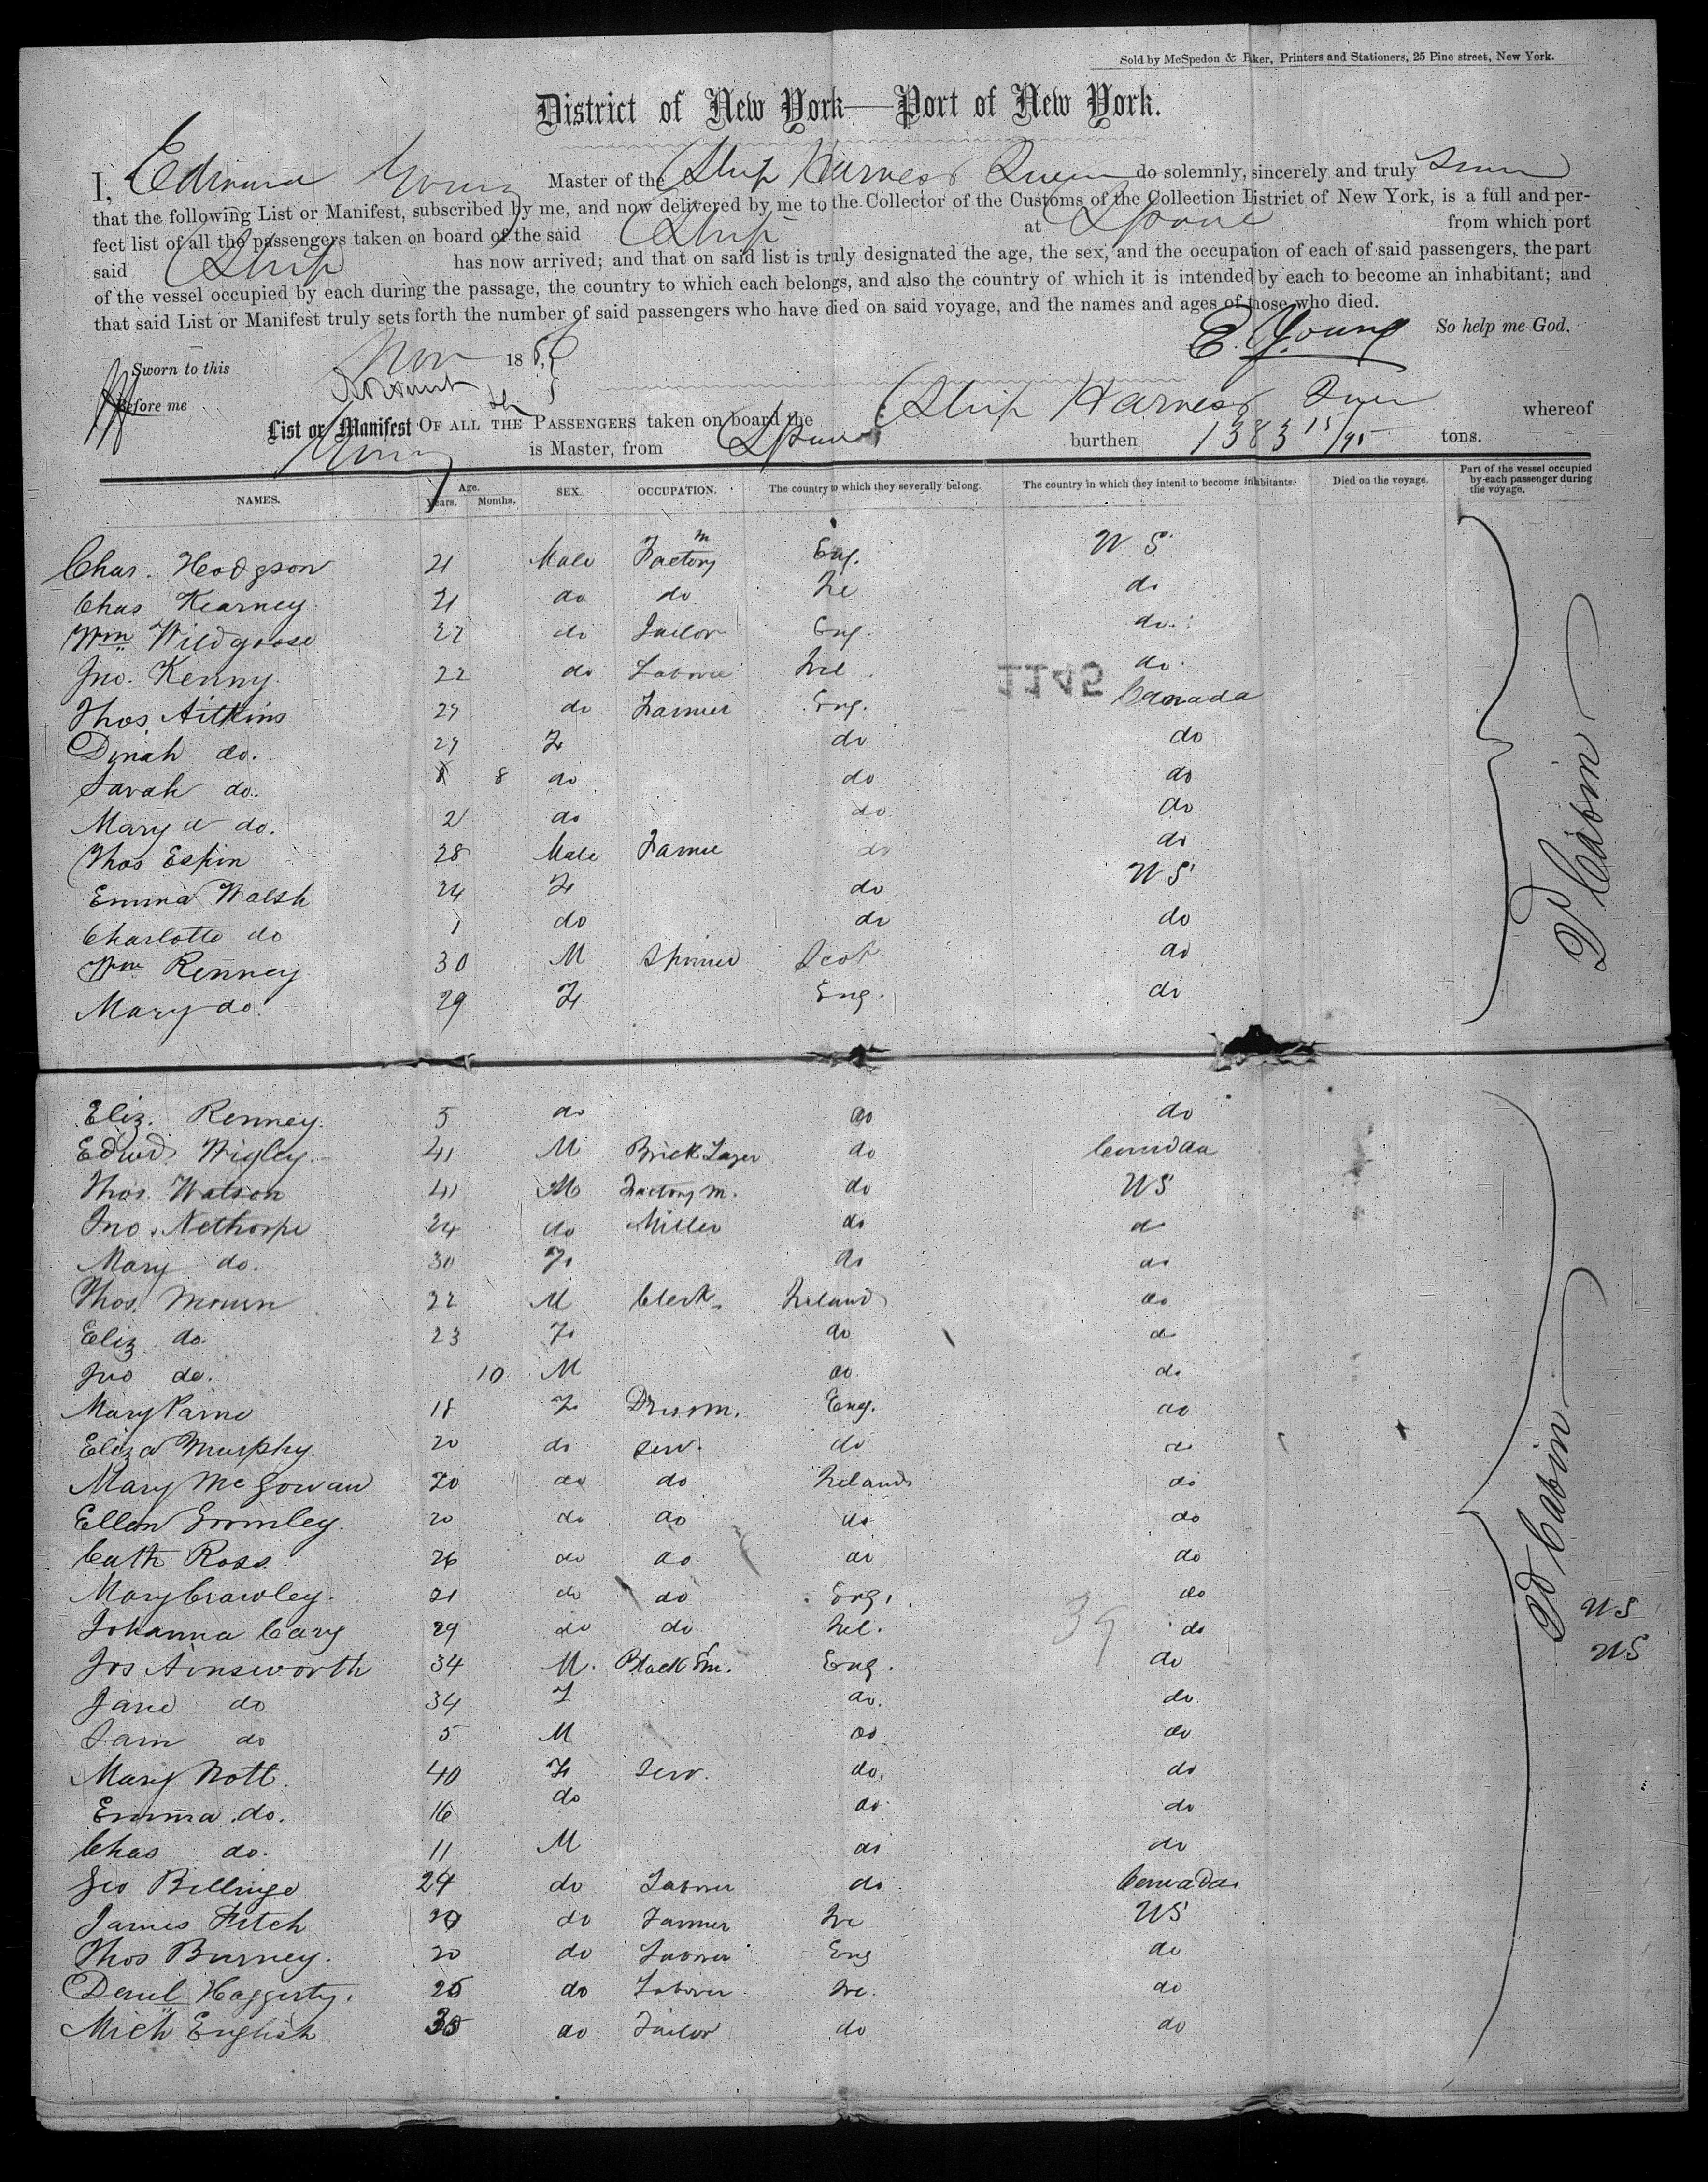 Sold by McSpedon & Baker, Printers and Stationers, 25 Pine street, New York.
District of New York—Port of New York.
I, Edward Young Master of the Ship Harvest Queen do solemnly, sincerely and truly Swear
that the following List or Manifest, subscribed by me, and now delivered by me to the Collector of the Customs of the Collection District of New York, is a full and per-
fect list of all the passengers taken on board of the said Ship at Lpool from which port
said Ship has now arrived; and that on said list is truly designated the age, the sex, and the occupation of each of said passengers, the part
of the vessel occupied by each during the passage, the country to which each belongs, and also the country of which it is intended by each to become an inhabitant; and
that said List or Manifest truly sets forth the number of said passengers who have died on said voyage, and the names and ages of those who died.
E. Young So help me God.
Sworn to this Nov 185
Before me
List or Manifest OF ALL THE PASSENGERS taken on board the Ship Harvest Queen whereof
Young is Master, from Lpool burthen 1383 15/95 tons.
NAMES. Age. Years. Months. SEX. OCCUPATION. The country to which they severally belong. The country in which they intend to become inhabitants. Died on the voyage. Part of the vessel occupied by each passenger during the voyage.
Chas. Hodgson 21 Male Factory m Eng. U S
Chas Kearney 21 do do Ire do
Wm Wildgoose 22 do Tailor Eng. do
Jno. Kenny 22 do Laborer Irel. do
1145
Thos. Aitkins 29 do Farmer Eng. Canada
Dinah do. 29 F do do
Sarah do. 8 do do do
Mary A do. 2 do do do
Thos Espin 28 Male Farmer do do
Emma Walsh 24 F do U S
Charlotte do 1 do do do
Wm Renney 30 M Spinner Scot do
Mary do. 29 F Eng. do
2d Cabin
Eliz. Renney. 5 do do do
Edwd. Wigley. 41 M Brick Layer do Canada
Thos. Watson 41 M Factory m. do US
Jno. Nethorpe 24 do Miller do do
Mary do. 30 F do do
Thos. Mourn 22 M Clerk. Ireland do
Eliz do. 23 F do do
Jno do. 10 M do do
Mary Parne 18 F Dressm. Eng. do
Eliza Murphy. 20 do serv. do do
Mary McGowan 20 do do Ireland do
Ellen Gormley. 20 do do do do
Cath Ross 26 do do do do
Mary Crawley. 21 do do Eng. do
39
Johanna Cary 29 do do Irel. do
Jos Ainsworth 34 M. Black Sm. Eng. do
Jane do 34 F do. do
Sam do 5 M do do
Mary Nott. 40 F Serv. do. do
Emma do. 16 do do do
Chas do. 11 M do do
Geo Billinge 24 do Laborer do Canada
James Fitch do Farmer Ire US
Thos Burney. 20 do Laborer Eng do
Danl Haggerty. 25 do Laborer Ire. do
Mich English 35 do Tailor do do
2d Cabin
US
US